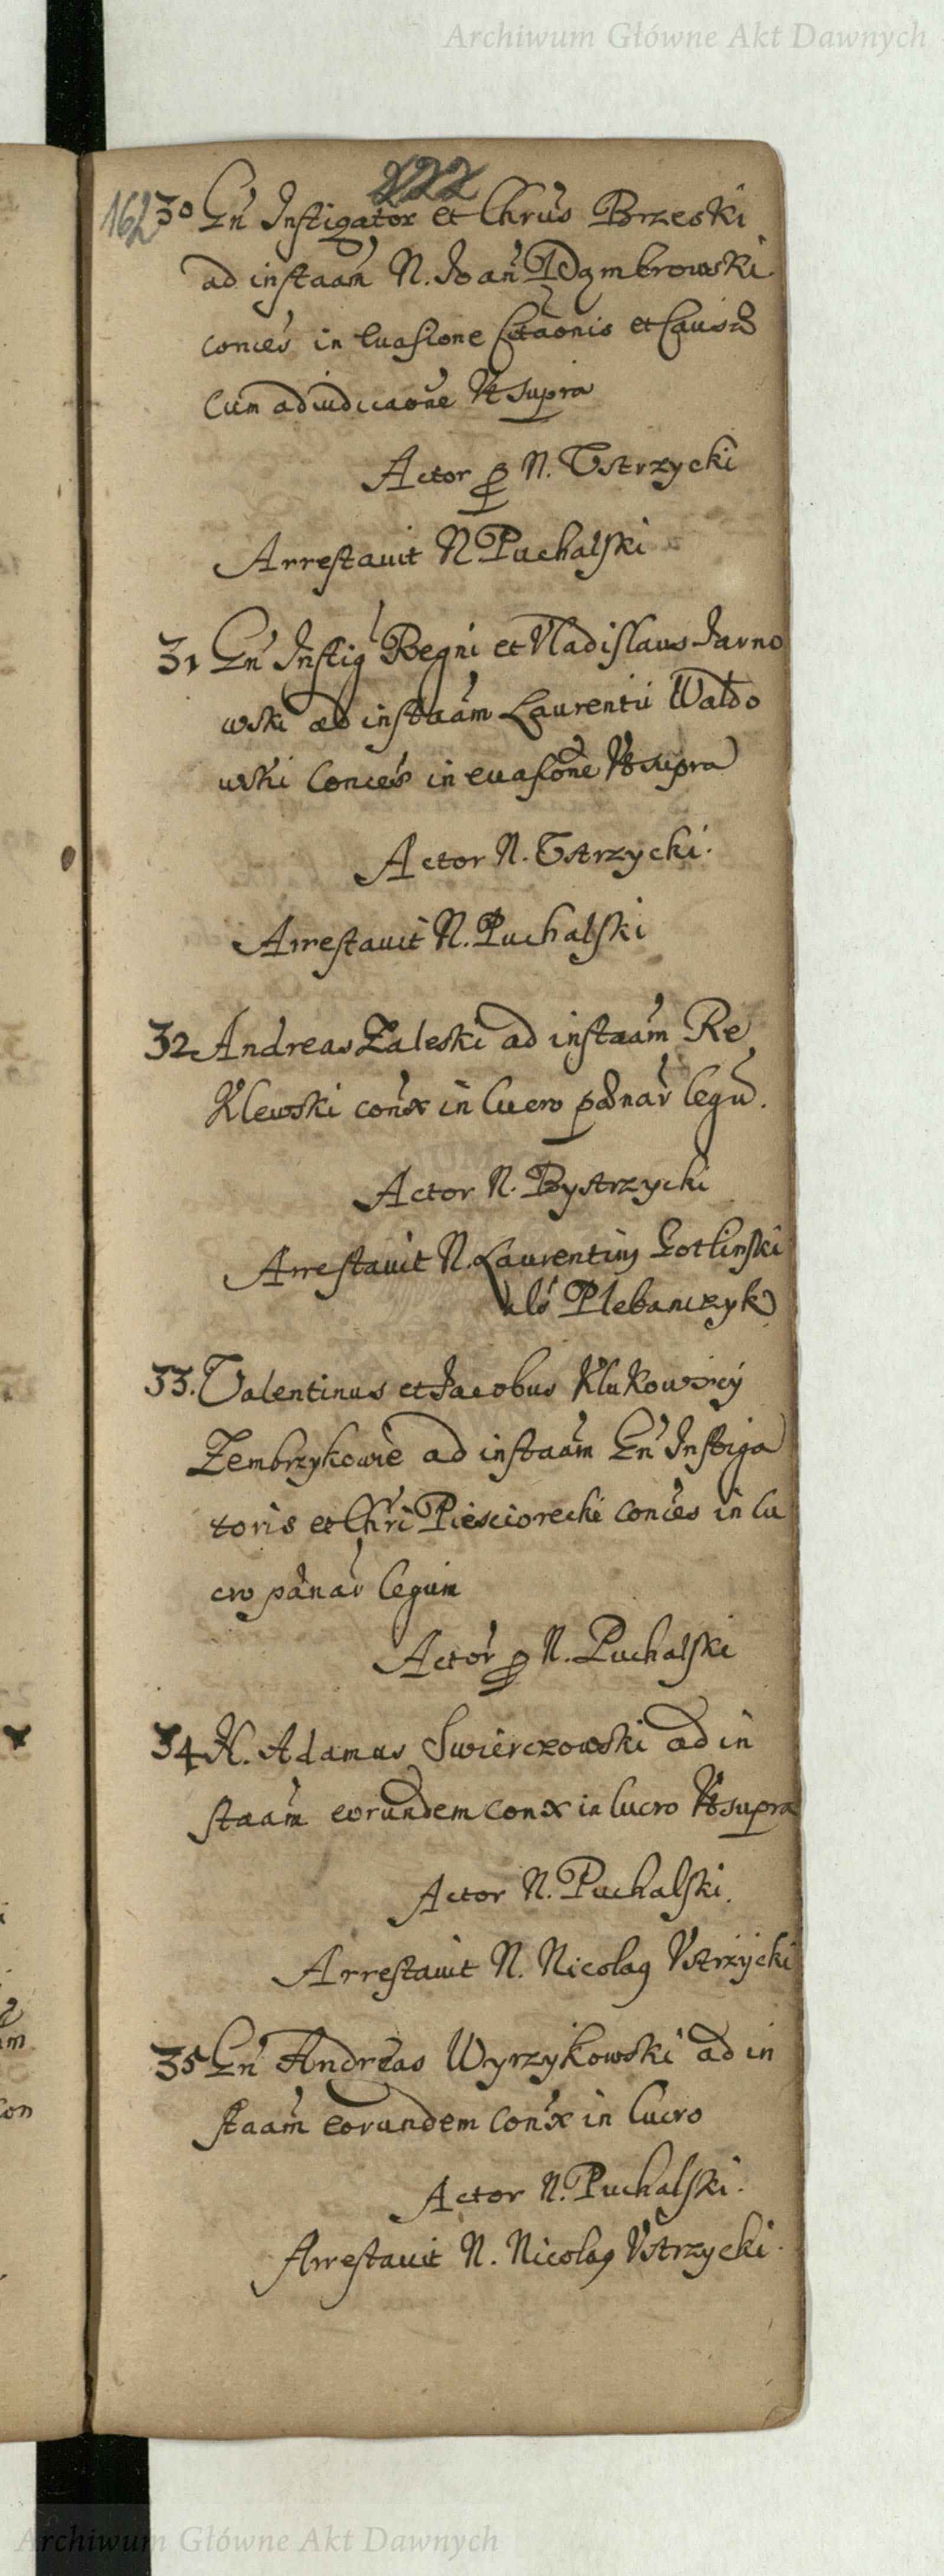 Archiwum Główne Akt Dawnych
222
162
30 Gn Instigator et Chrus Brzeski
ad instaam N. Joan Dąmbrowski
conces in Evasione Citaonis et
Cum adiudicaone Ut supra
Actor p N. Ustrzycki
Arrestauit N Puchalski
31 Gn Instig Regni et Vladislaus Jarno
wski ad instaam Laurentii Waldo
wski Conces in euasione Ut supra
Actor N. Ustrzycki.
Arrestauit N. Puchalski
32 Andreas Zaleski ad instaam Re
Klewski conx in lucro paenar legu.
Actor N. Bystrzycki
Arrestauit N. Laurentius Gotlinski
als Plebanczyk
33. Valentinus et Jacobus Klukowscy
Zembrzykowie ad instaam Gn Instiga
toris et Chri Piesciorecki conces in lu
cro panar legum
Actor p N. Puchalski
34 N. Adamus Swierczowski ad in
staam eorundem conx in lucro Ut supra
Actor N. Puchalski.
Arrestauit N. Nicolag Vstrzycki
35 Gn Andreas Wyrzykowski ad in
staam eorundem conx in lucro
Actor N. Puchalski.
Arrestauit N. Nicolag Vstrzycki.
Archiwum Główne Akt Dawnych